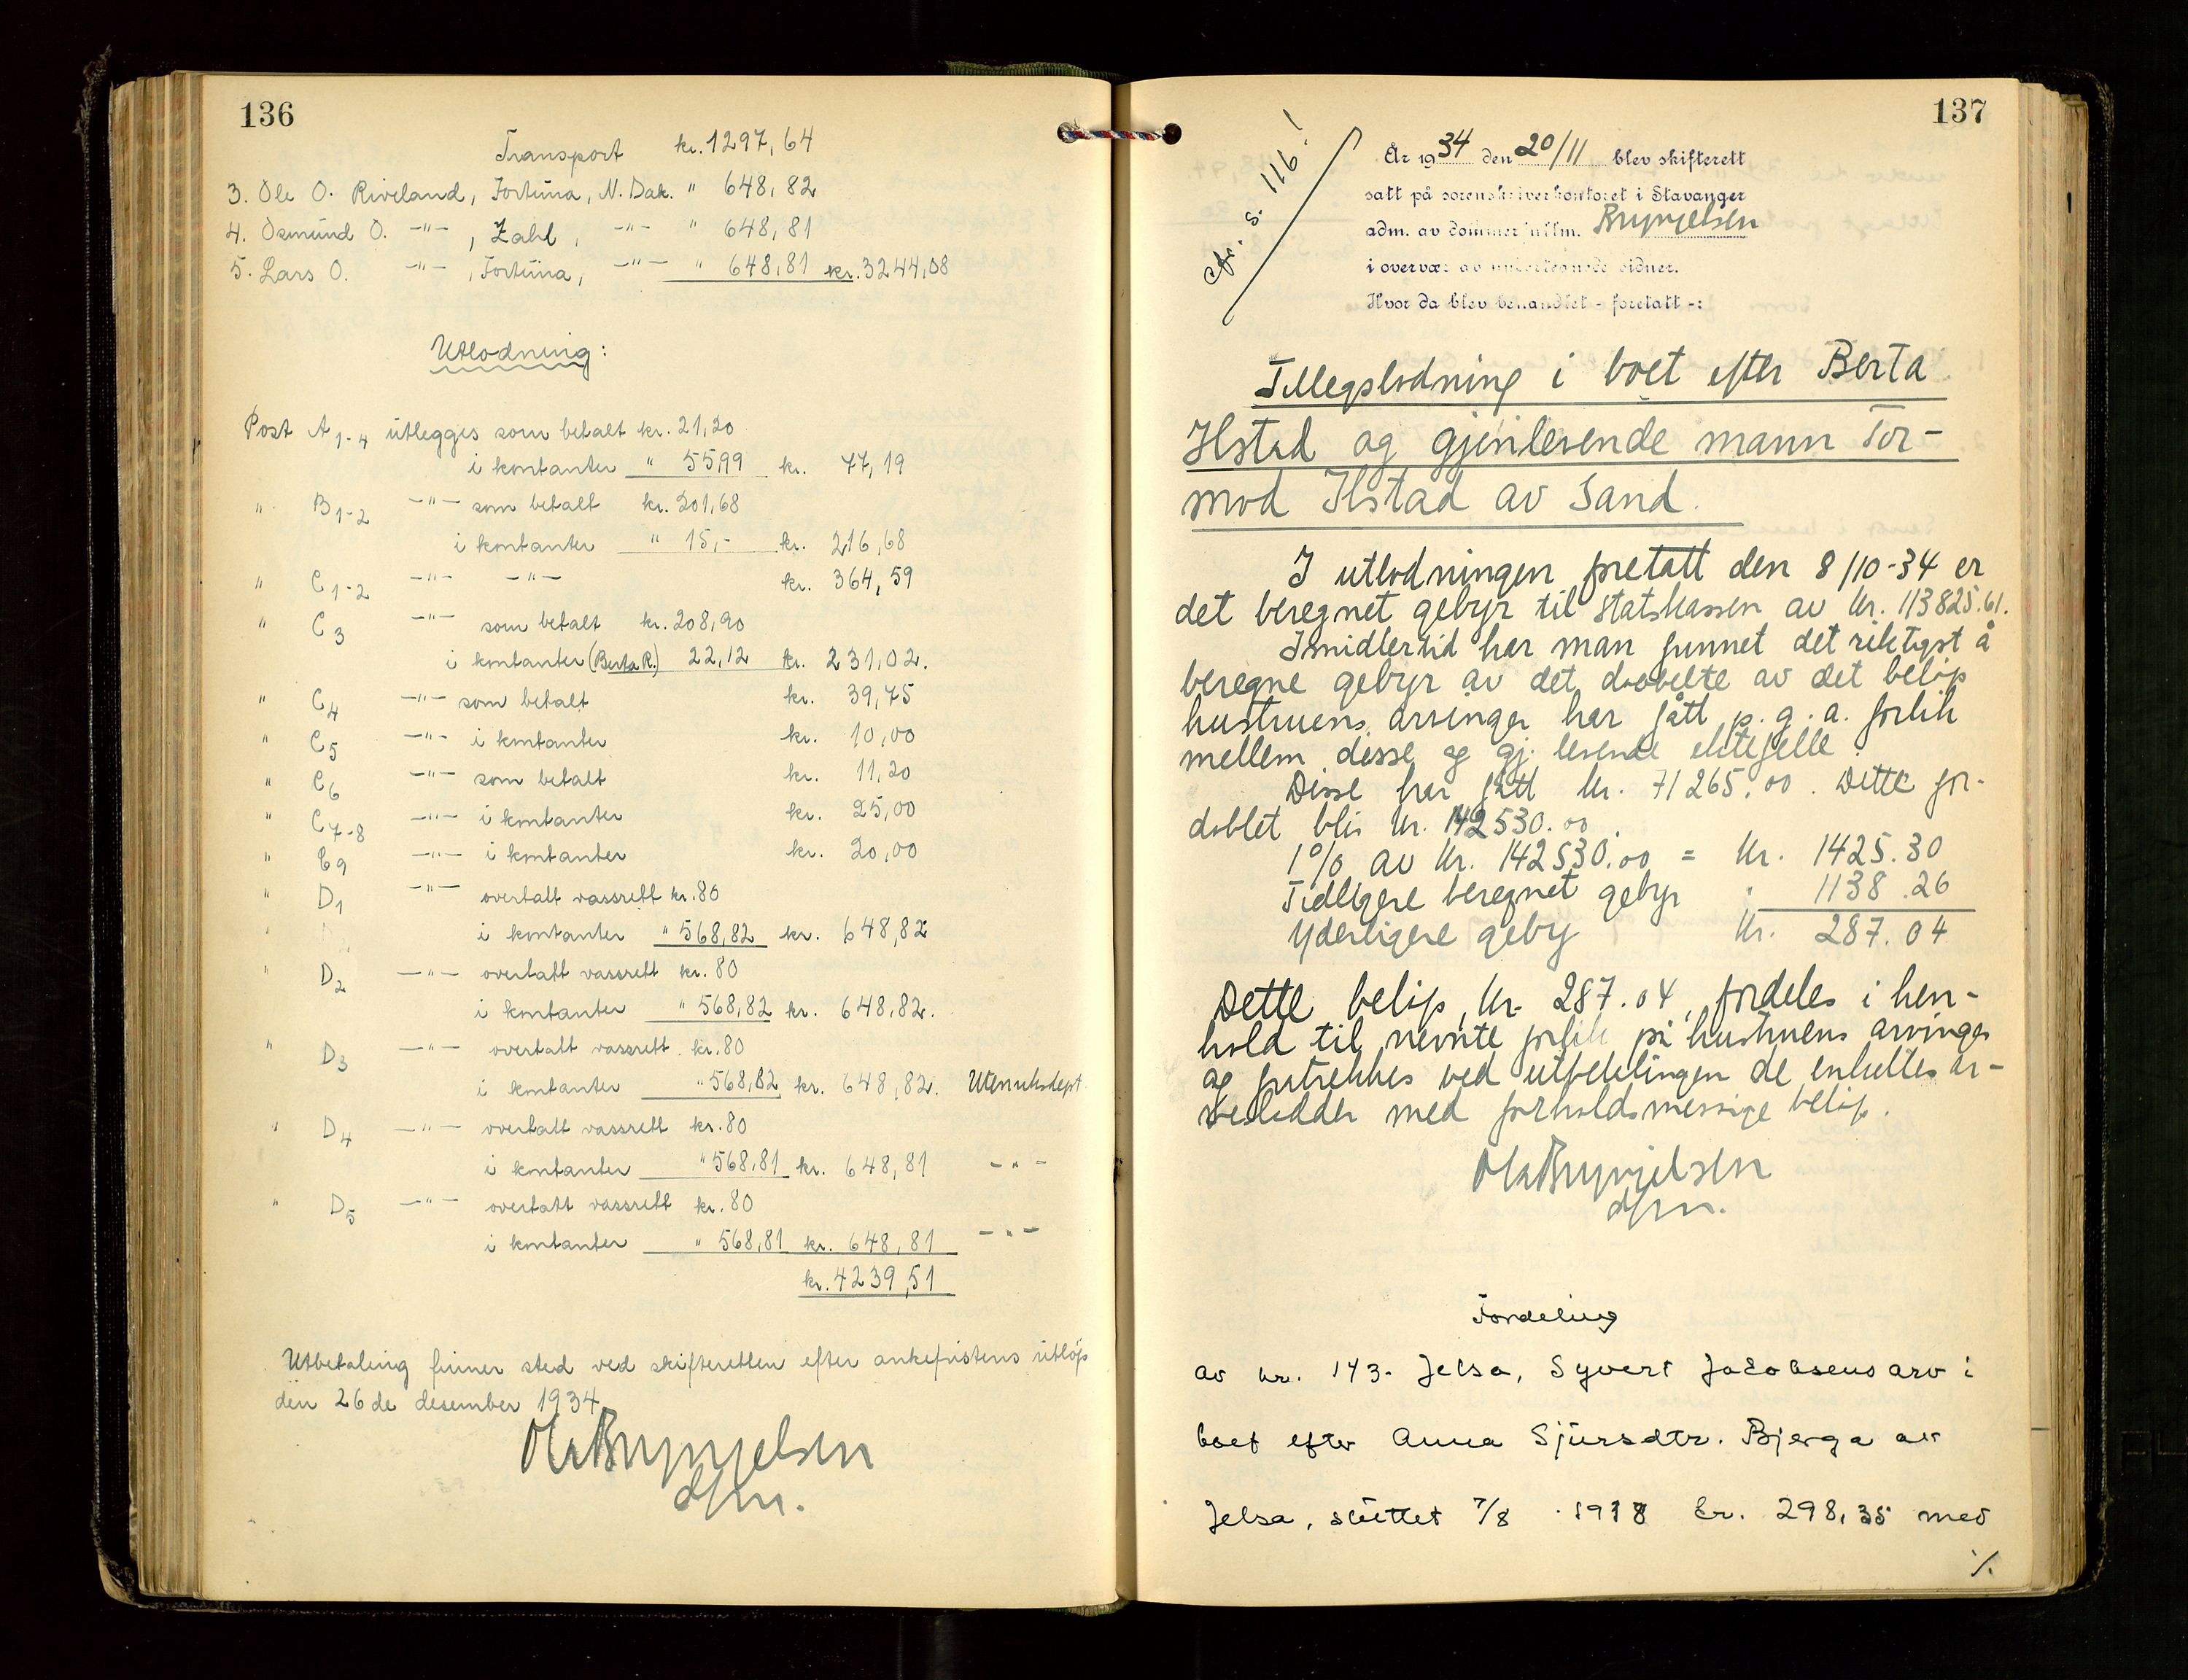 136
Transport kr. 1297,64
3. Ole O. Riveland, Fortuna, N. Dak. " 648,82
4. Osmund O. -"- , Zahl, -"- " 648,81
5. Lars O. -"- , Fortuna, -"- " 648,81 kr. 3244,08
Utlodning:
Post A 1-4 utlegges som betalt kr. 21,20
i kontanter " 55,99 kr. 77,19
" B 1-2 -"- som betalt kr. 201,68
i kontanter " 15,- kr. 216,68
" C 1-2 -"- -"- kr. 364,59
" C 3 -"- som betalt kr. 208,90
i kontanter (Berta R.) 22,12 kr. 231,02.
" C 4 -"- som betalt kr. 39,75
" C 5 -"- i kontanter kr. 10,00
" C 6 -"- som betalt kr. 11,20
" C 7-8 -"- i kontanter kr. 25,00
" C 9 -"- i kontanter kr. 20,00
" D 1 -"- overtatt vassrett kr. 80
i kontanter " 568,82 kr. 648,82
" D 2 -"- overtatt vassrett kr. 80
i kontanter " 568,82 kr. 648,82.
" D 3 -"- overtatt vassrett kr. 80
i kontanter " 568,82 kr. 648,82. Utenriksdept
" D 4 -"- overtatt vassrett kr. 80
i kontanter " 568,81 kr. 648,81 -"-
" D 5 -"- overtatt vassrett kr. 80
i kontanter " 568,81 kr. 648,81 -"-
kr. 4239,51
Utbetaling finner sted ved skifteretten efter ankefristens utløp
den 26de desember 1934
Ole Brynjelsen
dfm.
137
cfr. s. 116!
År 1934 den 20/11 blev skifterett
satt på sorenskriverkontoret i Stavanger
adm. av dommerfullm. Brynjelsen
i overvær av undertegnede vidner.
Hvor da blev behandlet - foretatt -:
Tillegslodning i boet efter Berta
Ilstad og gjenlevende mann Tor-
mod Ilstad av Sand.
I utlodningen foretatt den 8/10-34 er
det beregnet gebyr til statskassen av kr. 113825.61.
Imidlertid har man funnet det riktigst å
beregne gebyr av det dobbelte av det beløp
hustruens arvinger har fått p.g.a. forlik
mellem disse og gj. levende ektefelle.
Disse har fått kr. 71265.00. Dette for-
doblet blir kr. 142530.00.
1% av kr. 142530.00 = kr. 1425.30
Tidligere beregnet gebyr " 1138.26
Yderligere gebyr kr. 287.04
Dette beløp, kr. 287.04, fordeles i hen-
hold til nevnte forlik på hustruens arvinger
og fratrekkes ved utbetalingen de enkeltes ar-
velodder med forholdsmessige beløp.
Ole Brynjelsen
dfm.
Fordeling
av nr. 143. Jelsa, Syvert Jacobsens arv i
boet efter Anna Sjursdtr. Bjerga av
Jelsa, sluttet 7/8 1918 kr. 298,35 med
./.